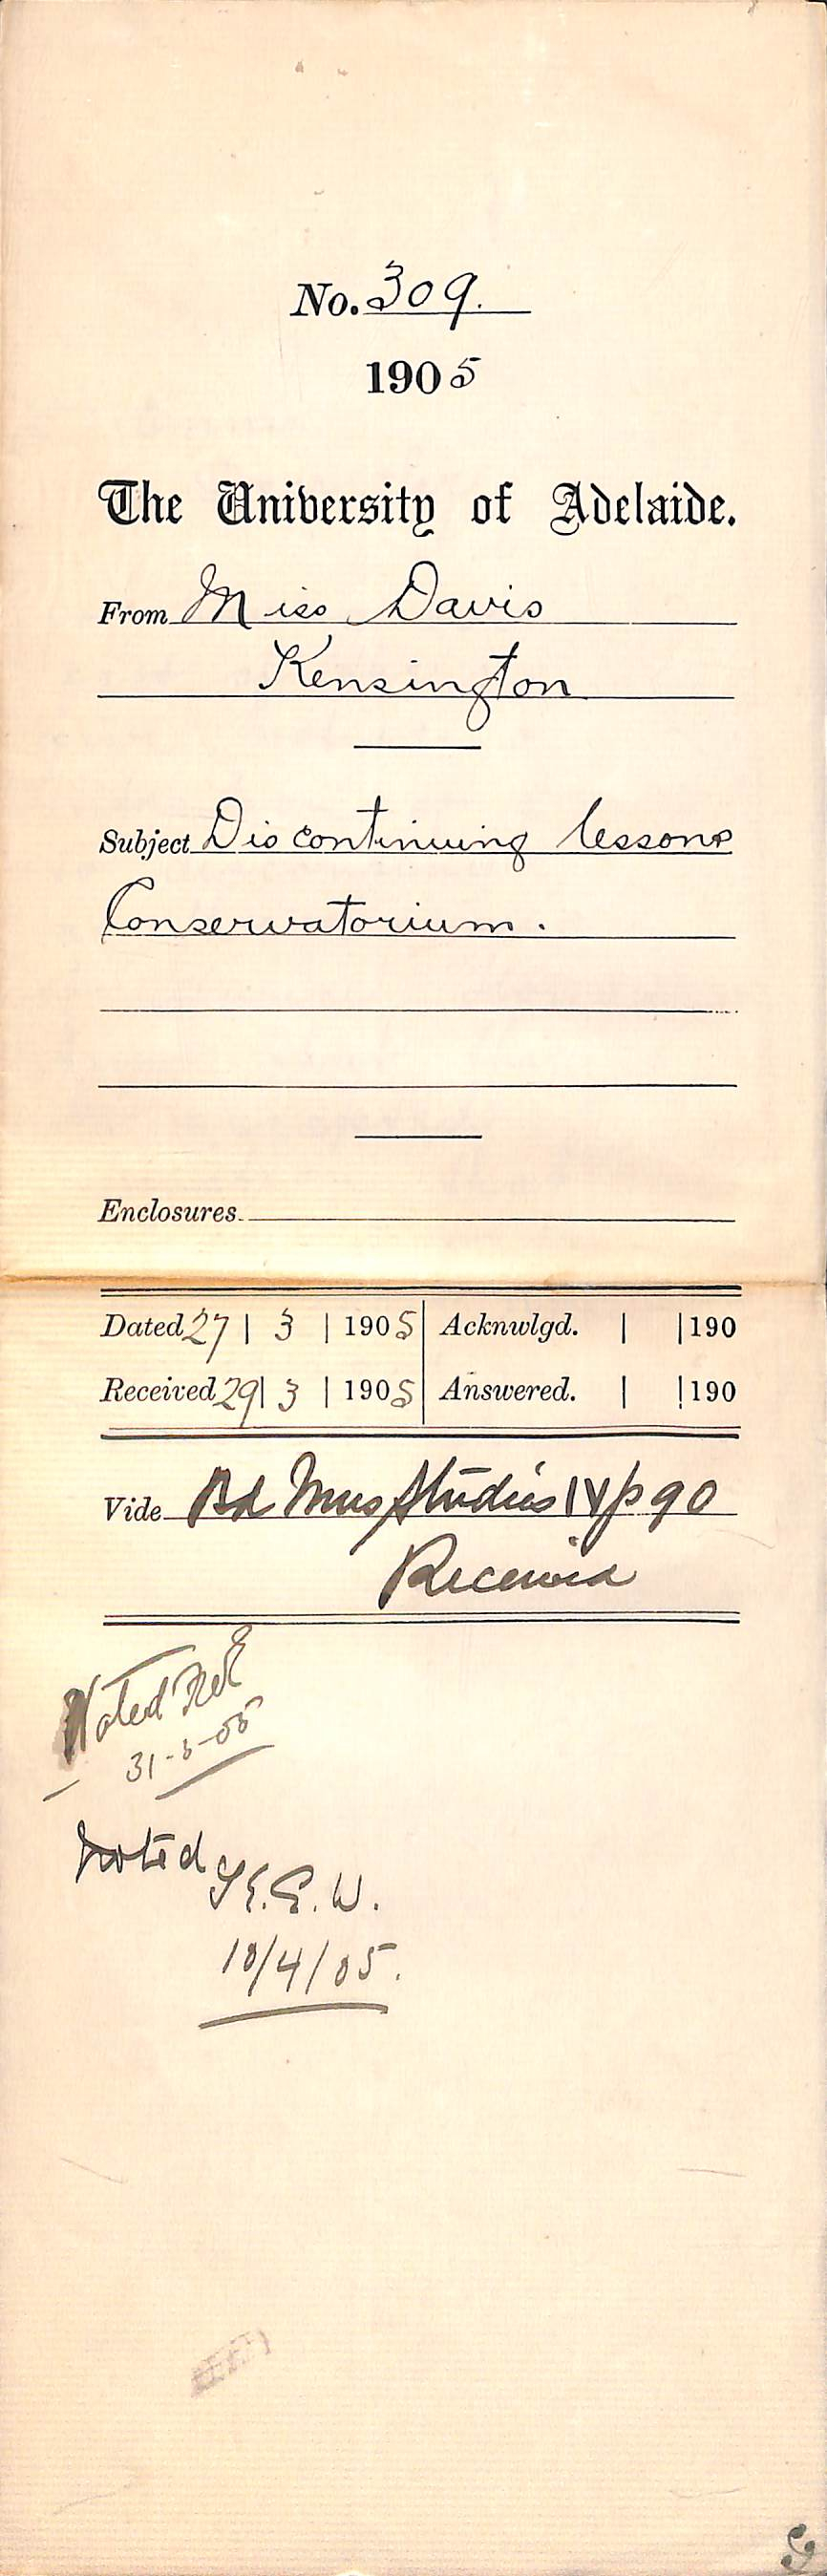 No. 309.
1905
The University of Adelaide.
From Miss Davis
Kensington
Subject Discontinuing lessons
Conservatorium.
Enclosures.
Dated 27 | 3 | 1905 Acknwlgd. | | 190
Received 29 | 3 | 1905 Answered. | | 190
Vide Bd Mus Studies IV p 90
Received
Noted
31-3-05
Noted
10/4/05.